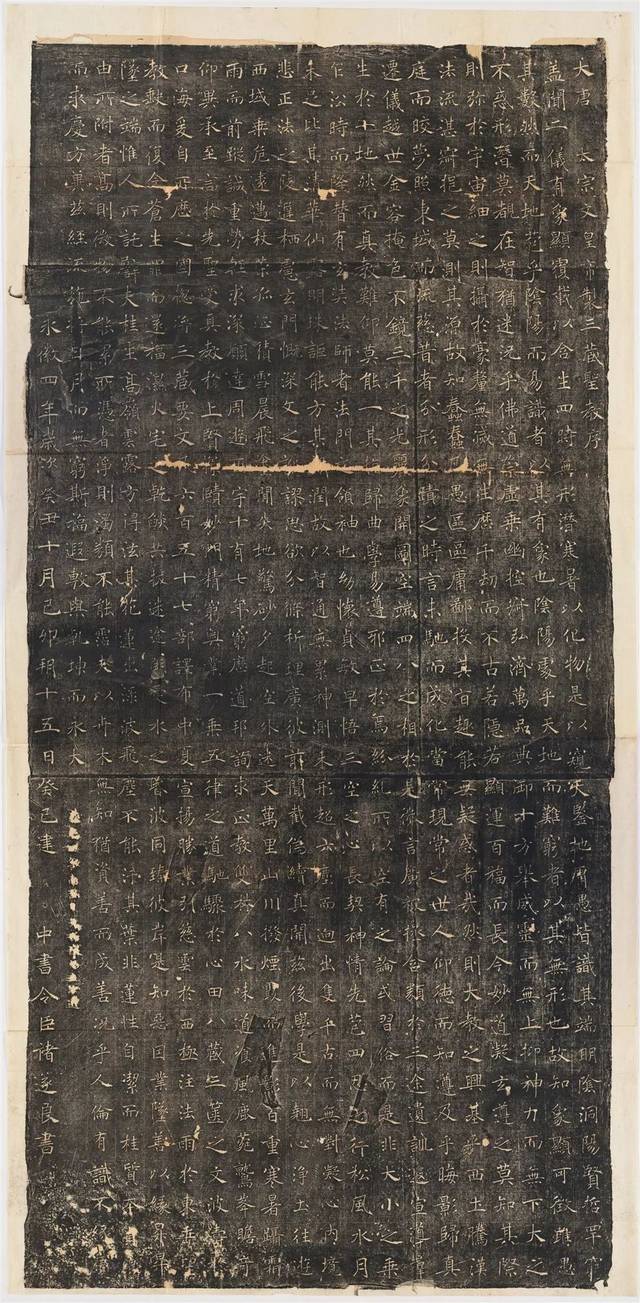 大唐太宗文皇帝製三藏聖教序
蓋聞二儀有象顯覆載以含生四時無形潛寒暑以化物是以窺天鑒地庸愚皆識其端明陰洞陽賢哲罕窮
其數然而天地苞乎陰陽而易識者以其有象也陰陽處乎天地而難窮者以其無形也故知象顯可徵雖愚
不惑形潛莫覩在智猶迷況乎佛道崇虛乘幽控寂弘濟萬品典御十方舉威靈而無上抑神力而無下大之
則彌於宇宙細之則攝於豪釐無滅無生歷千劫而不古若隱若顯運百福而長今妙道凝玄遵之莫知其際
法流湛寂挹之莫測其源故知蠢蠢凡愚區區庸鄙投其旨趣能無疑惑者哉然則大教之興基乎西土騰漢
庭而皎夢照東域而流慈昔者分形分蹟之時言未馳而成化當常現常之世人仰德而知遵及乎晦影歸真
遷儀越世金容掩色不鏡三千之光麗象開圖空端四八之相於是微言廣被拯含類於三途遺訓遐宣導羣
生於十地然而真教難仰莫能一其歸曲學易遵邪正於焉紛糺所以空有之論或習俗而是非大小之乘
乍沿時而隆替有奘法師者法門領袖也幼懷貞敏早悟三空之心長契神情先苞四忍之行松風水月
未足比其清華仙明珠詎能方其潤故以智通無累神測未形超六塵而迥出隻千古而無對凝心內境
悲正法之陵遲栖慮玄門慨深文之訛謬思欲分條析理廣彼前聞截偽續真開茲後學是以翹心淨土往遊
西域乘危遠邁杖策孤征積雪晨飛途間失地驚砂夕起空外迷天萬里山川撥煙霞而進影百重寒暑躡霜
雨而前蹤誠重勞輕求深願達周遊宇十有七年窮歷道邦詢求正教雙林八水味道飡風鹿菀鷲峯瞻奇
仰異承至言於先聖受真教於上賢賾妙門精窮奧業一乘五律之道馳驟於心田八藏三篋之文波濤於
口海爰自所歷之國總將三藏要文六百五十七部譯布中夏宣揚勝業引慈雲於西極注法雨於東垂聖
教缺而復全蒼生罪而還福濕火宅之乾燄共拔迷途朗愛水之昏波同臻彼岸是知惡因業墜善以緣昇昇
墜之端惟人所託譬夫桂生高嶺雲露方得泫其花蓮出淥波飛塵不能汙其葉非蓮性自潔而桂質本
由所附者高則微物不能累所憑者淨則濁類不能霑夫以卉木無知猶資善而成善況乎人倫有識不緣慶
而求慶方冀茲經流施將日月而無窮斯福遐敷與乾坤而永大
永徽四年歲次癸丑十月己卯朔十五日癸巳建中書令臣褚遂良書